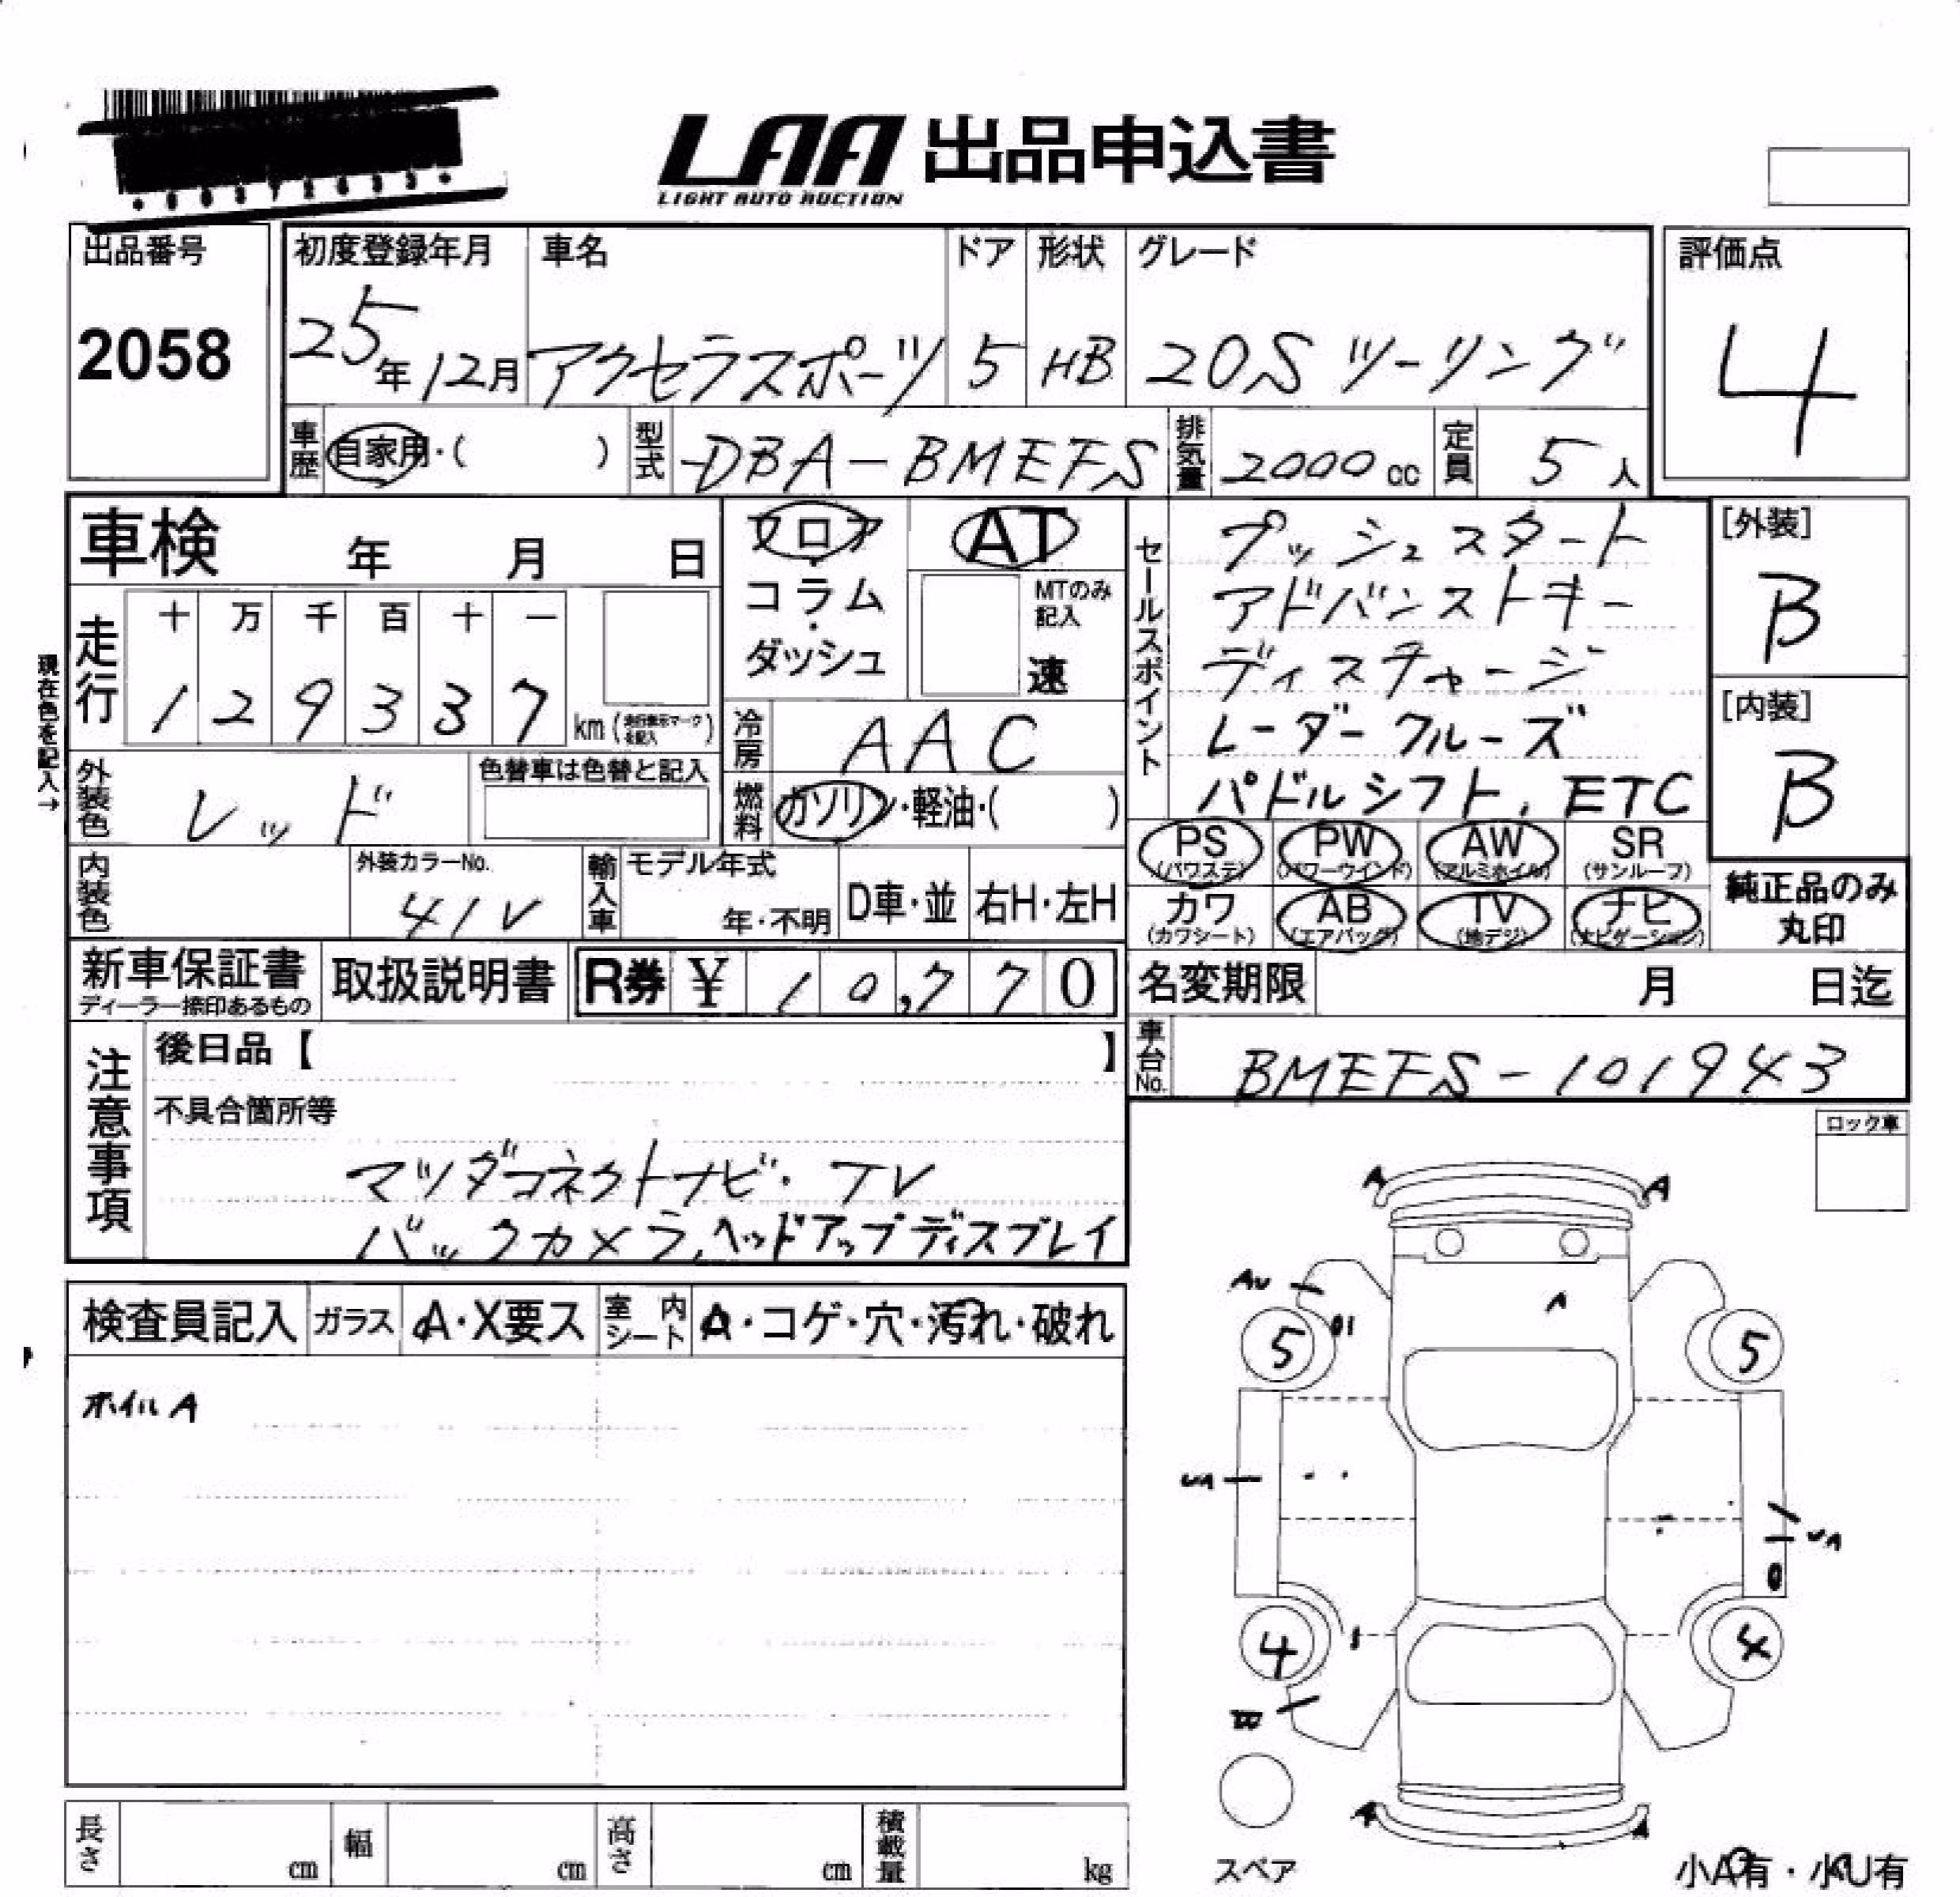 LAA 出品申込書
LIGHT AUTO AUCTION
出品番号
2058
初度登録年月
25年12月
車名
アクセラスポーツ
ドア
5
形状
HB
グレード
20S ツーリング
評価点
4
車歴 自家用・( )
型式 DBA-BMEFS
排気量 2000cc
定員 5人
車検 年 月 日
走行
十 万 千 百 十 一
1 2 9 3 3 7
km(走行表示マークを記入)
現在色を記入→
外装色 レッド
色替車は色替と記入
内装色
外装カラーNo.
41V
フロア・コラム・ダッシュ
AT
MTのみ記入
速
冷房 AAC
燃料 ガソリン・軽油・( )
輸入車
モデル年式
年・不明
D車・並
右H・左H
セールスポイント
プッシュスタート
アドバンストキー
ディスチャージ
レーダークルーズ
パドルシフト, ETC
[外装]
B
[内装]
B
PS (パワステ)
PW (パワーウインド)
AW (アルミホイル)
SR (サンルーフ)
カワ (カワシート)
AB (エアバッグ)
TV (地デジ)
ナビ (ナビゲーション)
純正品のみ
丸印
新車保証書
ディーラー捺印あるもの
取扱説明書
R券 ¥ 10,770
名変期限 月 日迄
車台No. BMEFS-101943
注意事項
後日品【 】
不具合箇所等
マツダコネクトナビ・TV
バックカメラ,ヘッドアップディスプレイ
ロック車
検査員記入
ガラス A・X要ス
室内シート A・コゲ・穴・汚れ・破れ
ホイルA
A A
A
5 5
4 4
A A
スペア
小A有・小U有
長さ cm
幅 cm
高さ cm
積載量 kg